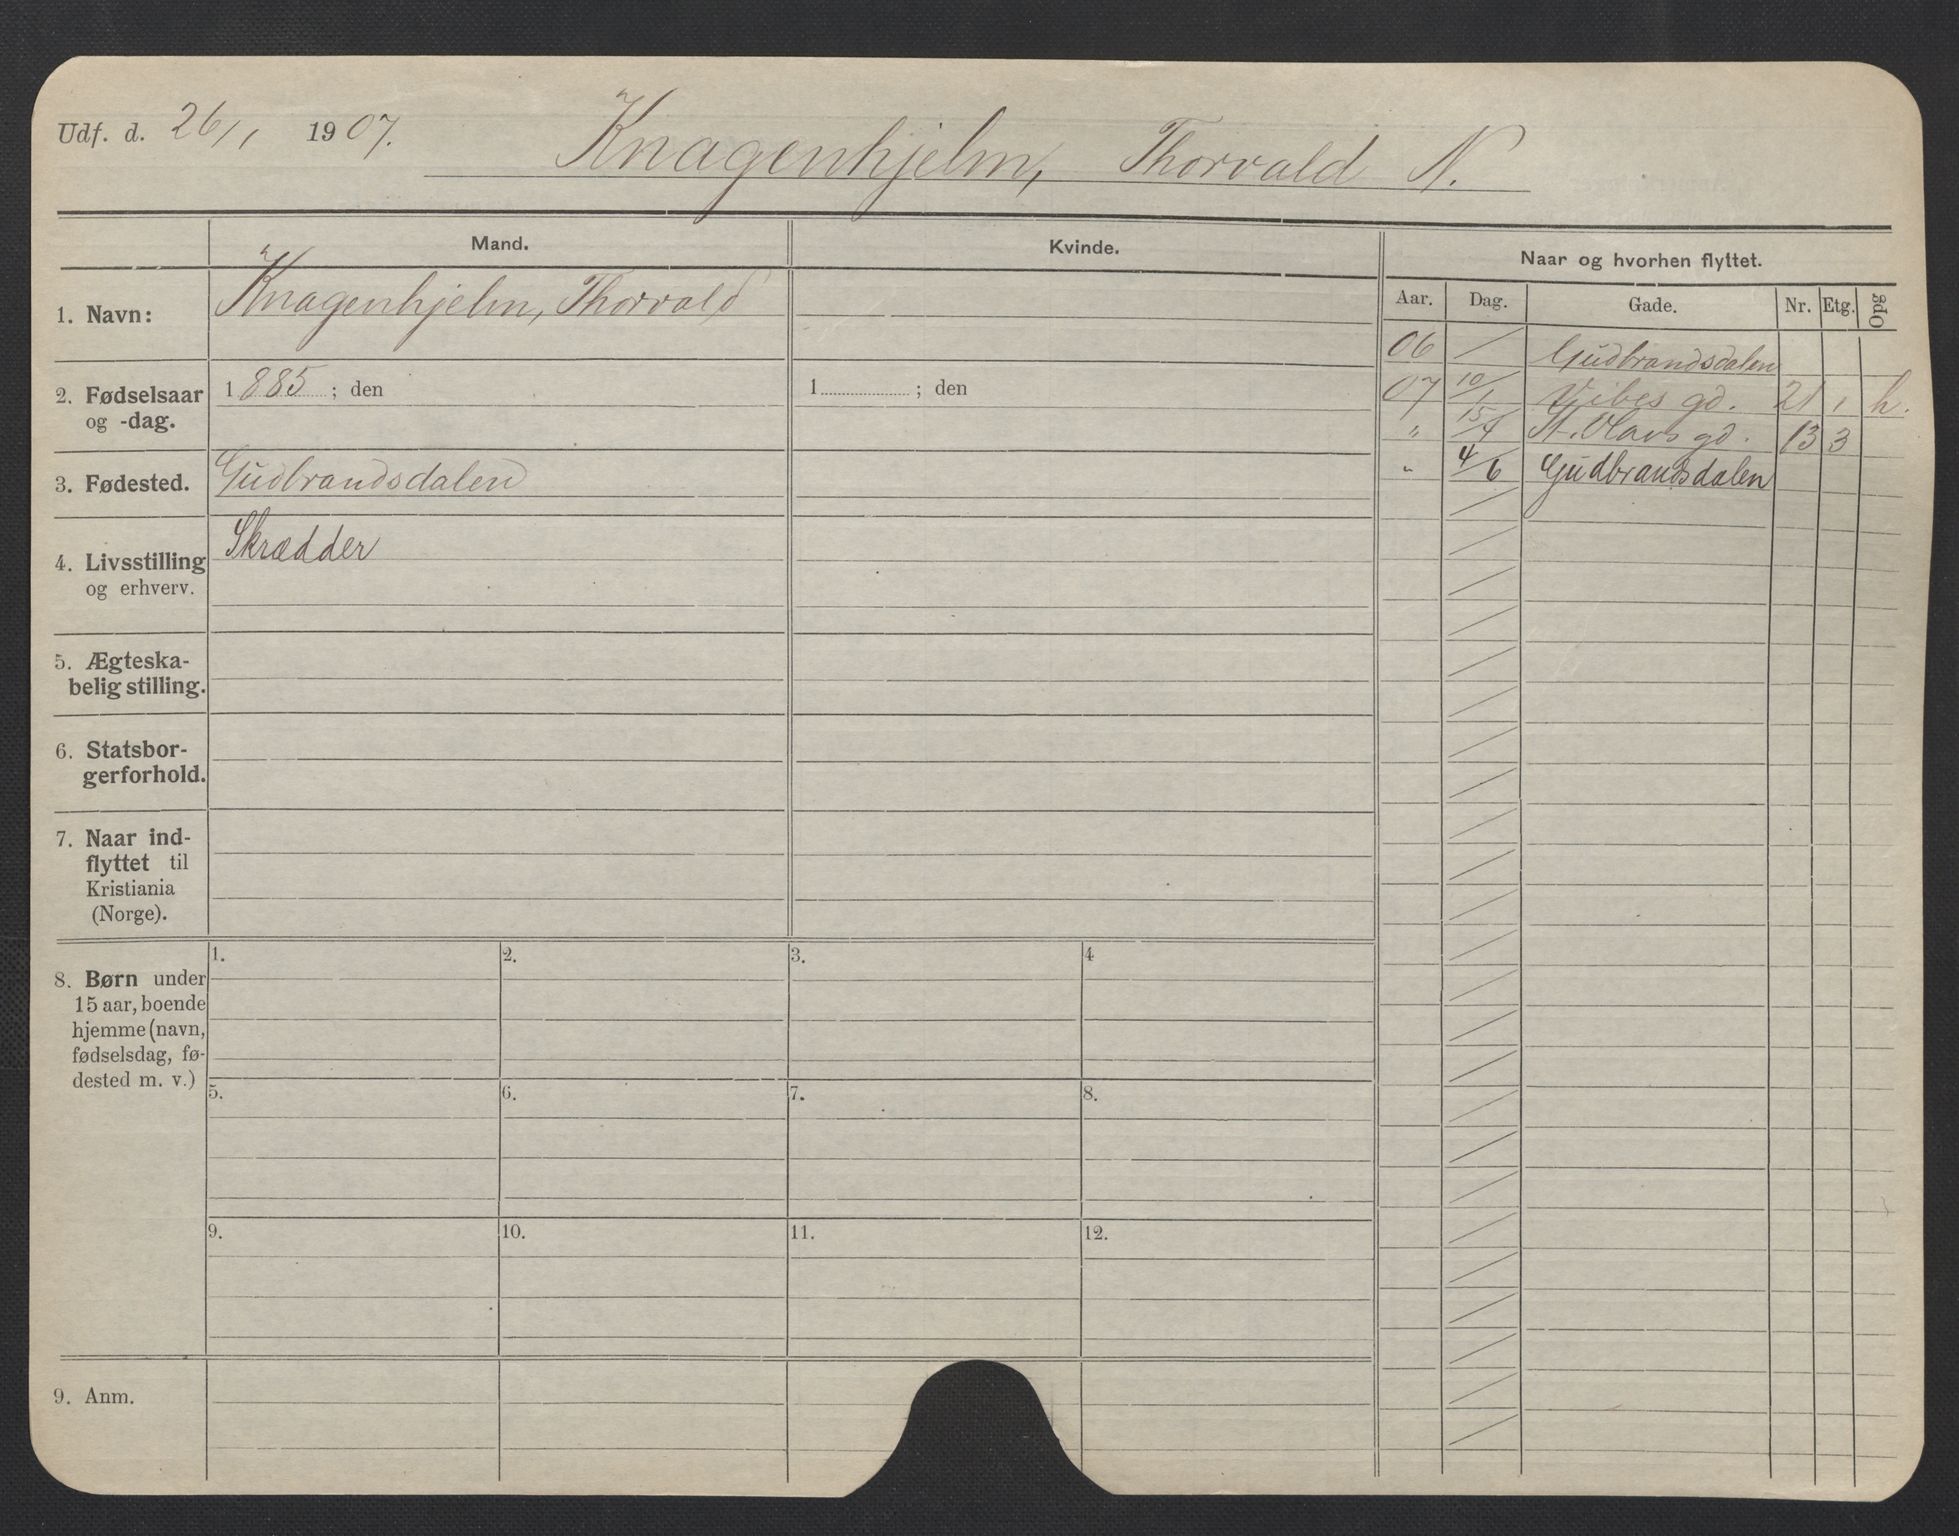 Udf. d. 26/1 1907.
Knagenhjelm, Thorvald N.
Mand.
Kvinde.
Naar og hvorhen flyttet.
Aar. Dag. Gade. Nr. Etg. Opg
1. Navn: Knagenhjelm, Thorvald
2. Fødselsaar og -dag. 1885; den
1 ; den
3. Fødested. Gudbrandsdalen
4. Livsstilling og erhverv. Skrædder
5. Ægteska-
belig stilling.
6. Statsbor-
gerforhold.
7. Naar ind-
flyttet til
Kristiania
(Norge).
8. Børn under
15 aar, boende
hjemme (navn,
fødselsdag, fø-
dested m. v.)
1. 2. 3. 4
5. 6. 7. 8.
9. 10. 11. 12.
9. Anm.
06 / Gudbrandsdalen
07 10/1 Vibes gd. 21 1 h.
" 15/4 St. Olavs gd. 13 3
" 4/6 Gudbrandsdalen